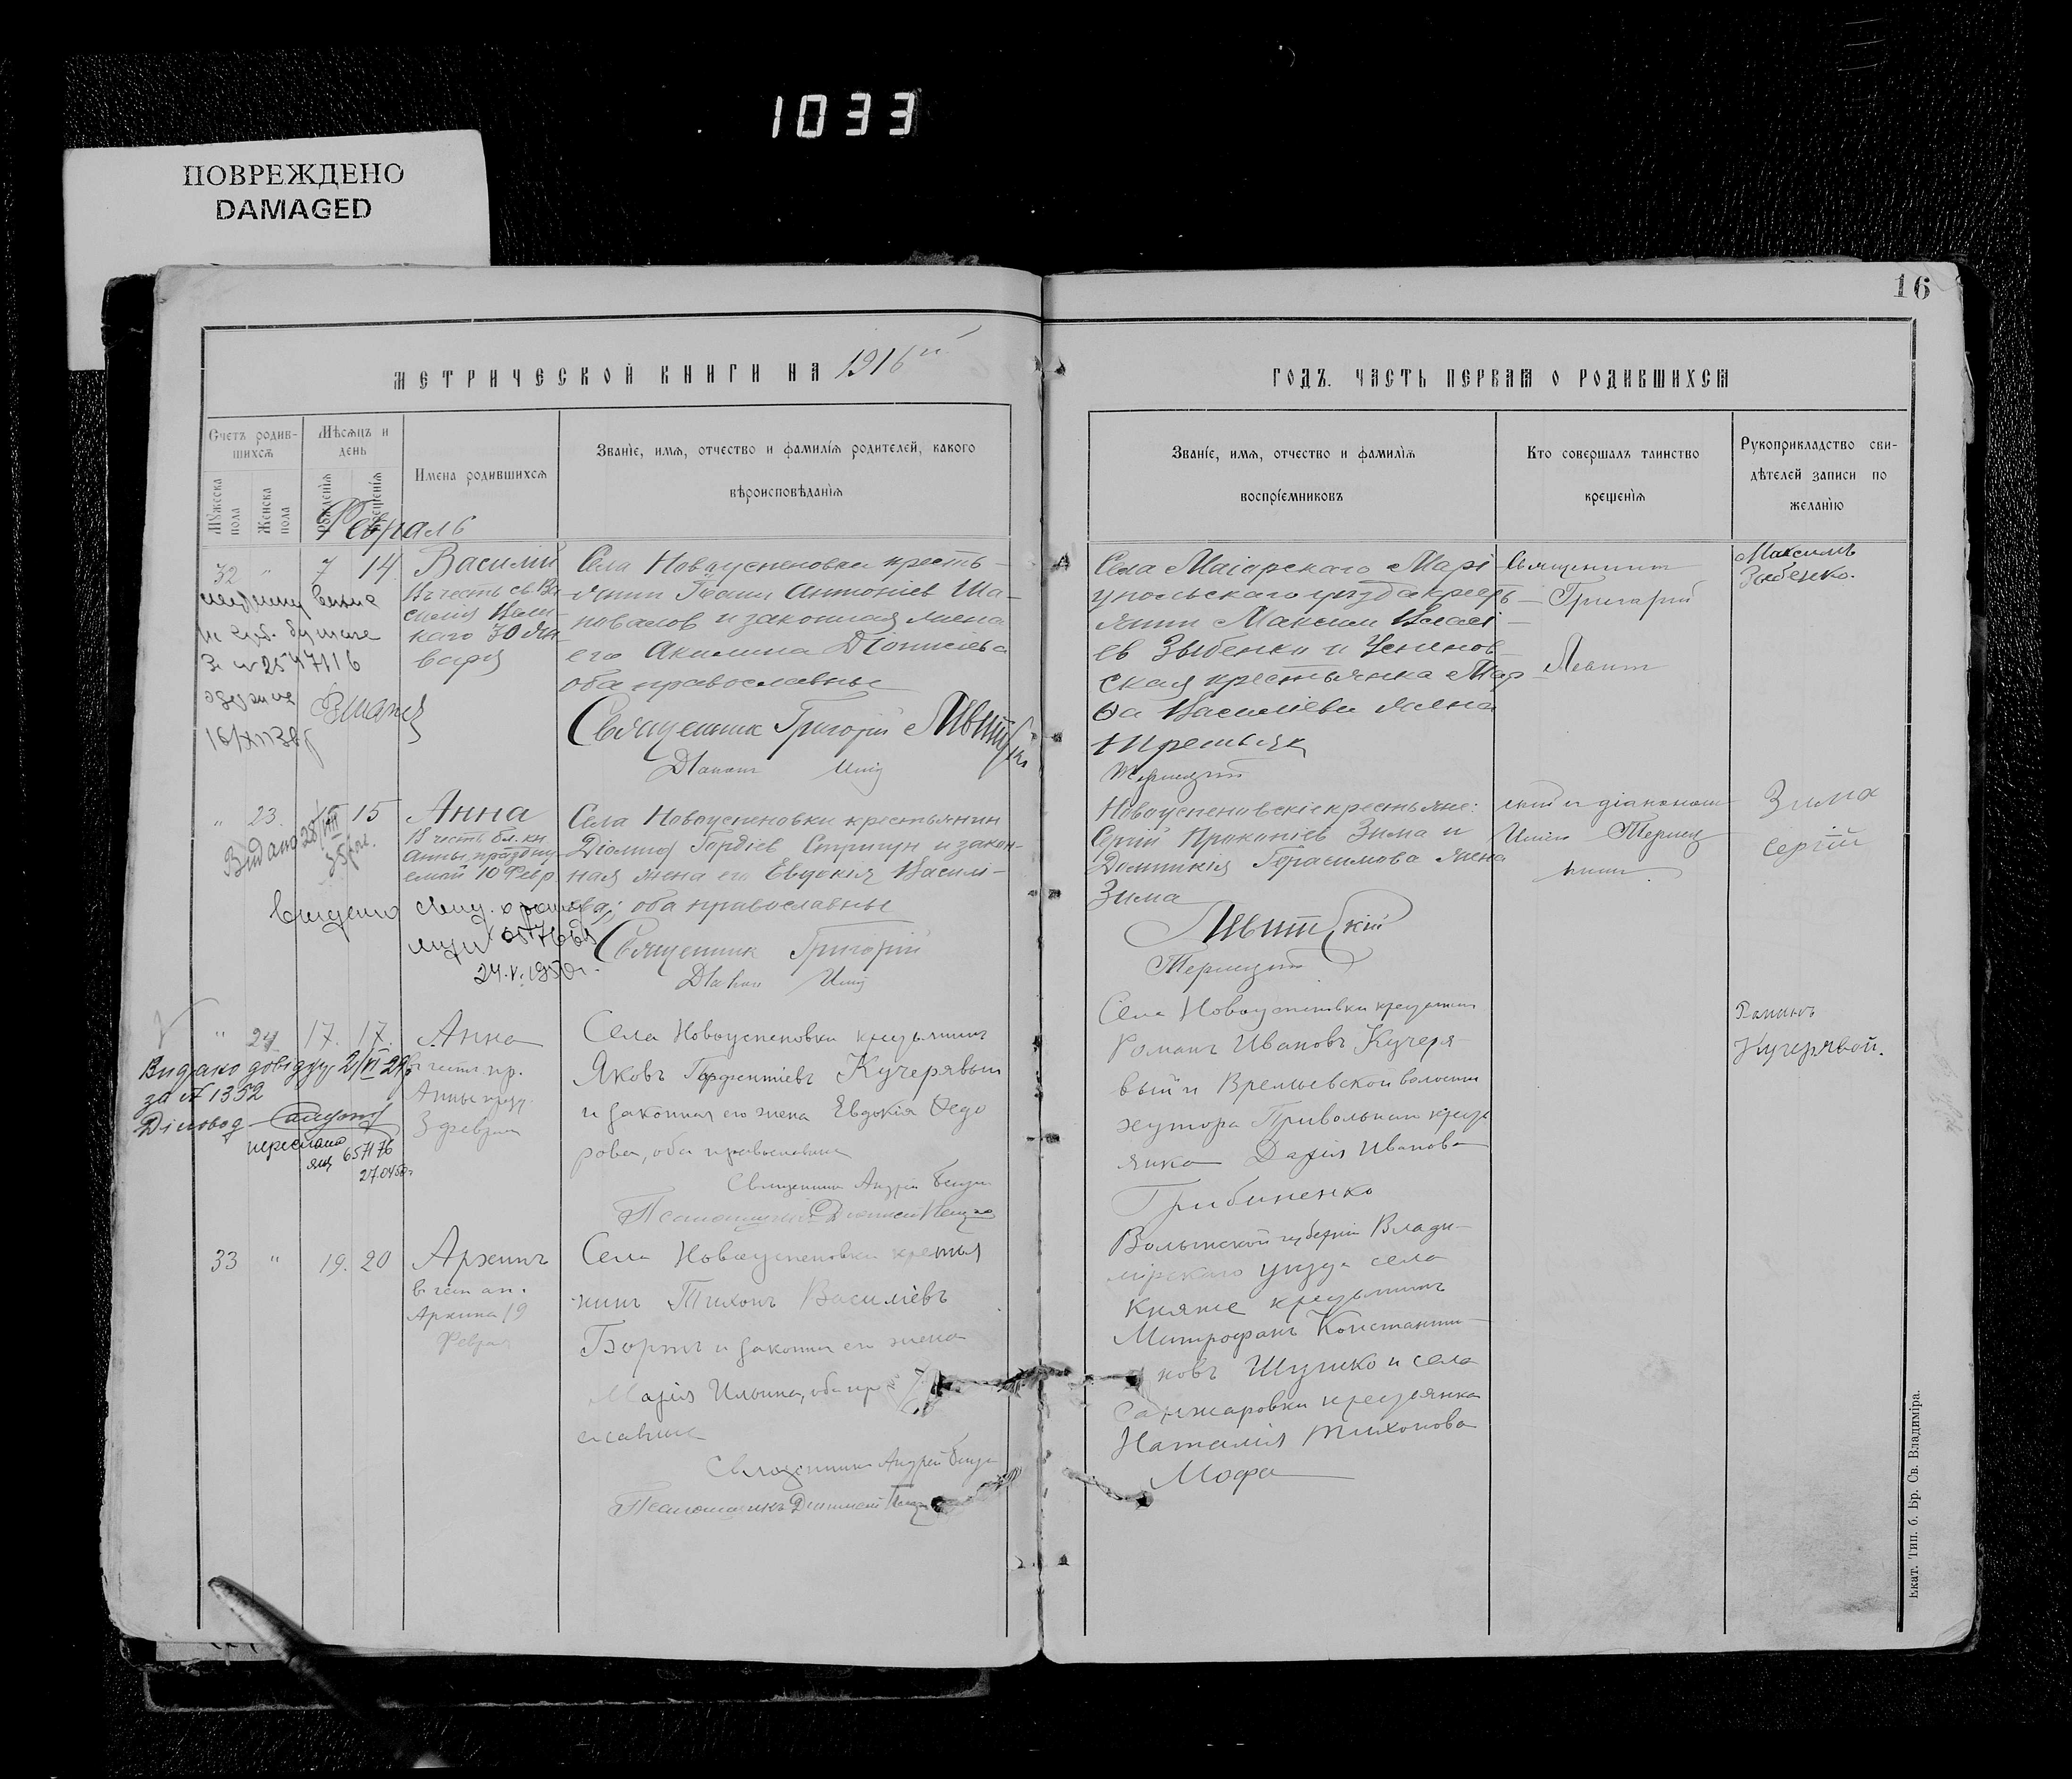 1033
ПОВРЕЖДЕНО
DAMAGED
16
МЕТРИЧЕСКОЙ КНИГИ НА 1916й
ГОДЪ. ЧАСТЬ ПЕРВАЯ О РОДИВШИХСЯ
Счетъ родив-
шихся
Мужеска пола
Женска пола
Мѣсяцъ и
день
рожденія
крещенія
Имена родившихся
Званіе, имя, отчество и фамилія родителей, какого
вѣроисповѣданія
Званіе, имя, отчество и фамилія
воспріемниковъ
Кто совершалъ таинство
крещенія
Рукоприкладство сви-
дѣтелей записи по
желанію
Февраль
32 " 7 14
Василій
Въ честь св. Ва-
силія Вели-
каго 30 Ян-
варя
Села Новоуспеновки кресть-
янин Иоанн Антоніев Ша-
повалов и законная жена
его Акилина Діонисіева
оба православные
Священник Григорий Левитский
Діакон
Села Маіорскаго Марі-
упольскаго уезда кресть-
янин Максим Васелі-
ев Зыбенко и Успенов-
ская крестьянка Мар-
ѳа Василіева жена
Священник
Григорий
Левит
Максимъ
Зыбенко.
" 23. 15
Анна
В честь бл. кн
Анны праздну
емой 10 Февр
Видано 28/VIII
35 рік.
24.V.1950г.
Села Новоуспеновки крестьянин
Діомид Гордіев Стригун и закон-
ная жена его Евдокия Васили-
ева; оба православные
Священник Григорий
Діакон
Новоуспеновские крестьяне:
Сергий Прокопіев Зима и
Домникія Герасимова жена
Зима
Левитский
ский и діаконом
Зима
Сергій
" 24. 17. 17.
Анна
Видано довідку 2/VI 29
за № 1352
Діловод
переслано
ящ 657176
3 февраля
Села Новоуспеновки крестьянинъ
Яковъ Кучерявый
и законная его жена Евдокія Ѳедо
рова, оба православные
Священникъ Андрей
Псаломщикъ
Села Новоуспеновки крестьянин
Романъ Ивановъ Кучеря-
вый и Времьевской волости
хутора Привольнаго кресть
янка Дарія Иванова
Грибиненко
Романъ
Кучерявой.
33 " 19. 20
Архипъ
в чест ап.
Архипа 19
Февраля
Села Новоуспеновки крестья
нинъ Тихонъ Василіевъ
Бортъ и законная его жена
Марія Ильина, оба пра
славные
Священникъ Андрей
Псаломщикъ
Волынской губерніи Влади-
мірскаго уезда села
Княже крестьянинъ
Митрофанъ Константи-
новъ Шушко и села
Санжаровки крестьянка
Наталія Тихонова
Мофа
Екат. Тип. б. Бр. Св. Владиміра.